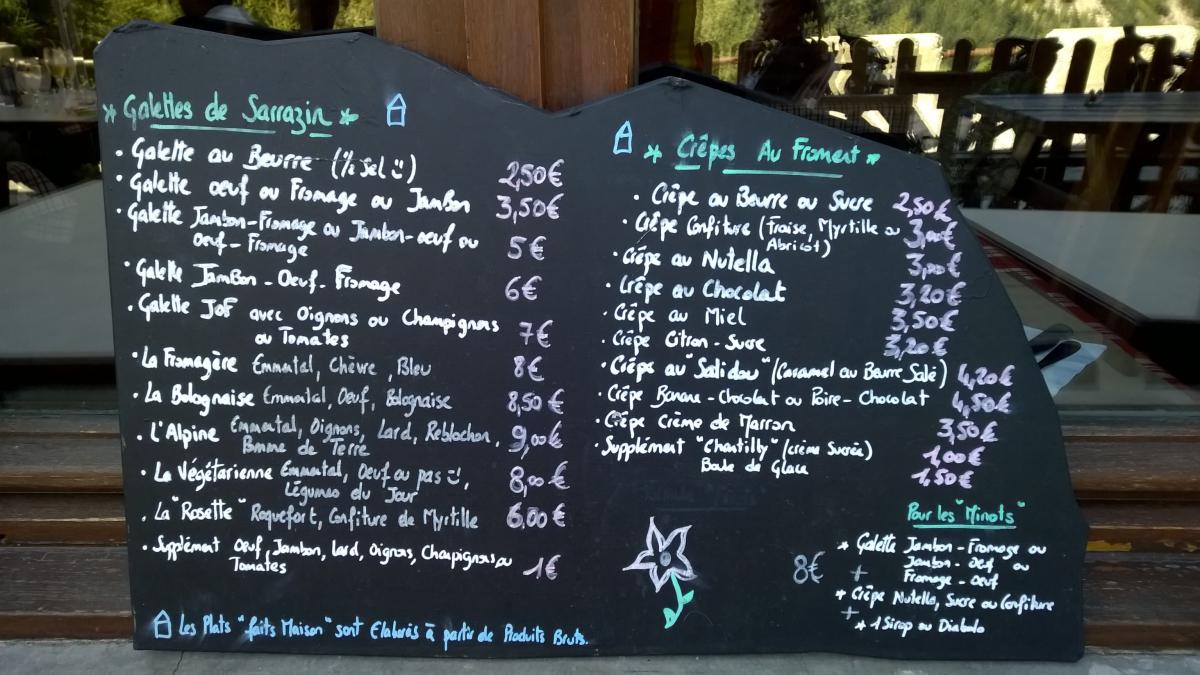 * Galettes de Sarrazin *
• Galette au Beurre (½ Sel) 2,50€
• Galette oeuf ou Fromage ou Jambon 3,50€
• Galette Jambon-Fromage ou Jambon-oeuf ou
oeuf-Fromage 5€
• Galette Jambon-Oeuf-Fromage 6€
• Galette JoF avec Oignons ou Champignons
ou Tomates 7€
• La Fromagère Emmental, Chèvre, Bleu 8€
• La Bolognaise Emmental, Oeuf, Bolognaise 8,50€
• L'Alpine Emmental, Oignons, Lard, Reblochon,
Pomme de Terre 9,00€
• La Végétarienne Emmental, Oeuf ou pas,
Légumes du Jour 8,00€
• La "Rosette" Roquefort, Confiture de Myrtille 6,00€
• Supplément Oeuf, Jambon, Lard, Oignons, Champignons ou
Tomates 1€
Les Plats "faits Maison" sont Elaborés à partir de Produits Bruts.
* Crêpes Au Froment *
• Crêpe au Beurre ou Sucre 2,50€
• Crêpe Confiture (Fraise, Myrtille ou
Abricot) 3,00€
• Crêpe au Nutella 3,00€
• Crêpe au Chocolat 3,20€
• Crêpe au Miel 3,50€
• Crêpe Citron-Sucre 3,20€
• Crêpe au "Salidou" (Caramel au Beurre Salé) 4,20€
• Crêpe Banane-Chocolat ou Poire-Chocolat 4,50€
• Crêpe Crème de Marron 3,50€
• Supplément "Chantilly" (crème Sucrée) 1,00€
Boule de Glace 1,50€
Pour les "Minots"
* Galette Jambon-Fromage ou
Jambon-Oeuf ou
8€ + Fromage-Oeuf
* Crêpe Nutella, Sucre ou Confiture
+
* 1 Sirop ou Diabolo